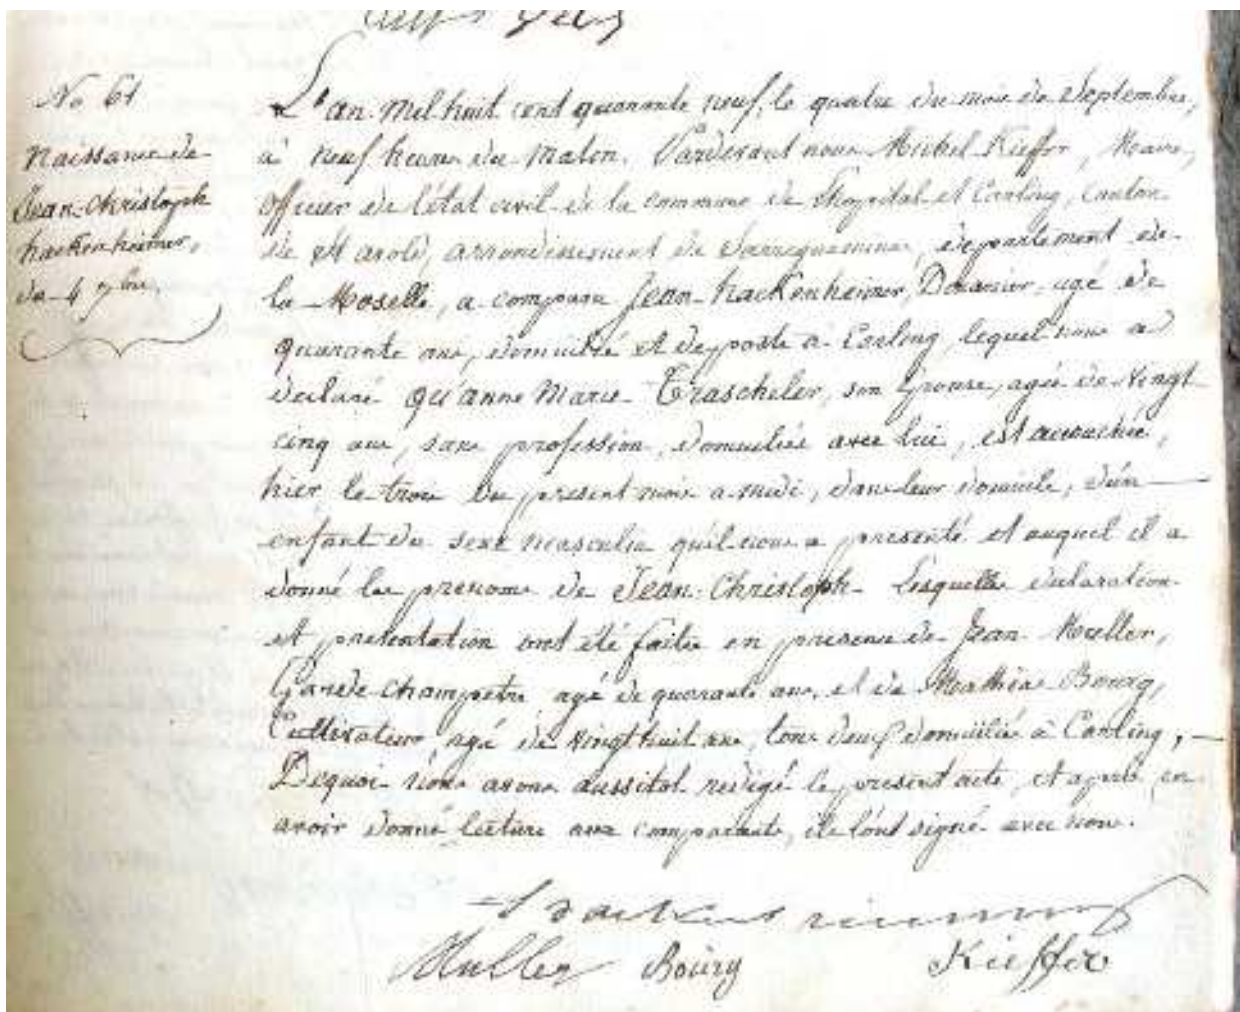 No 61
Naissance de
Jean-Christoph
hackenheimer,
du 4 7bre
L'an mil huit cent quarante neuf, le quatre du mois de Septembre,
à neuf heures du matin. Pardevant nous Michel Kieffer, Maire,
Officier de l'état civil de la commune de l'hopital et Carling, canton
de St avold, arrondissement de Sarreguemines, departement de
la Moselle, a comparu Jean hackenheimer, Douanier, agé de
quarante ans, domicilié et de poste à Carling, lequel nous a
declaré qu'anne Marie Trascheler, son Epouse, agée de vingt
cinq ans, sans profession, domiciliée avec lui, est accouchée,
hier le trois du present mois a midi, dans leur domicile, d'un
enfant du sexe masculin qu'il nous a presenté et auquel il a
donné les prenoms de Jean-Christoph. Lesquelles declaration
et presentation ont été faites en presence de Jean Muller,
Garde-champetre agé de quarante ans, et de Mathias Bourg,
Cultivateur, agé de vingt huit ans, tous deux domiciliés à Carling,
Dequoi nous avons aussitot redigé le present acte, et après en
avoir donné lecture aux comparants, ils l'ont signé avec nous.
Muller Bourg Kieffer